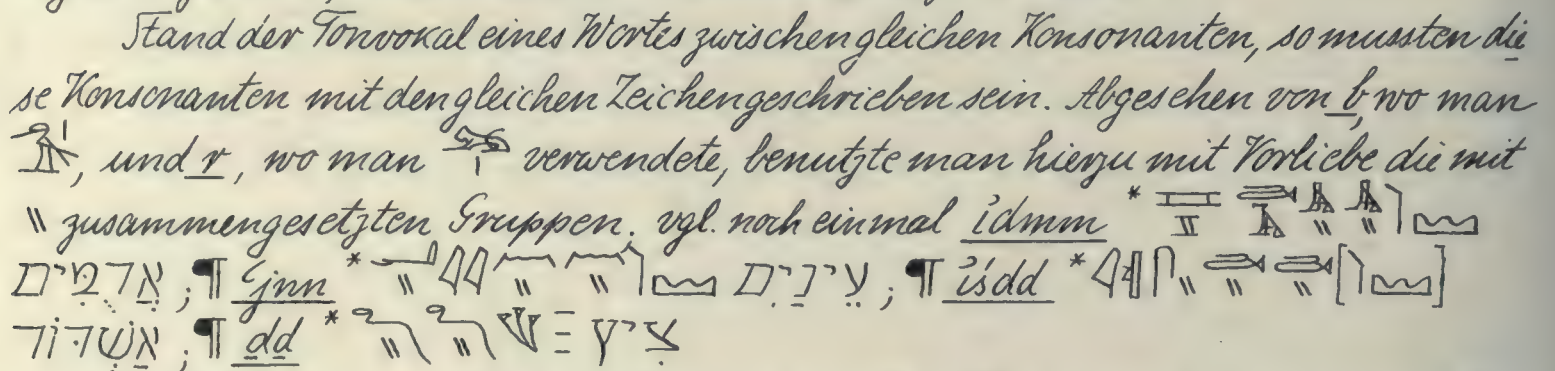 Stand der Tonvokal eines Wortes zwischen gleichen Konsonanten, so mussten die
se Konsonanten mit den gleichen Zeichen geschrieben sein. Abgesehen von b, wo man
, und r, wo man verwendete, benutzte man hierzu mit Vorliebe die mit
\\ zusammengesetzten Gruppen. vgl. noch einmal ỉdmm *
אֲדָמִּים ; ¶ ꜥjnn * עֵינַיִם ; ¶ ỉśdd * [ ]
אַשְׁדּוֹד ; ¶ ḏḏ * צִיץ